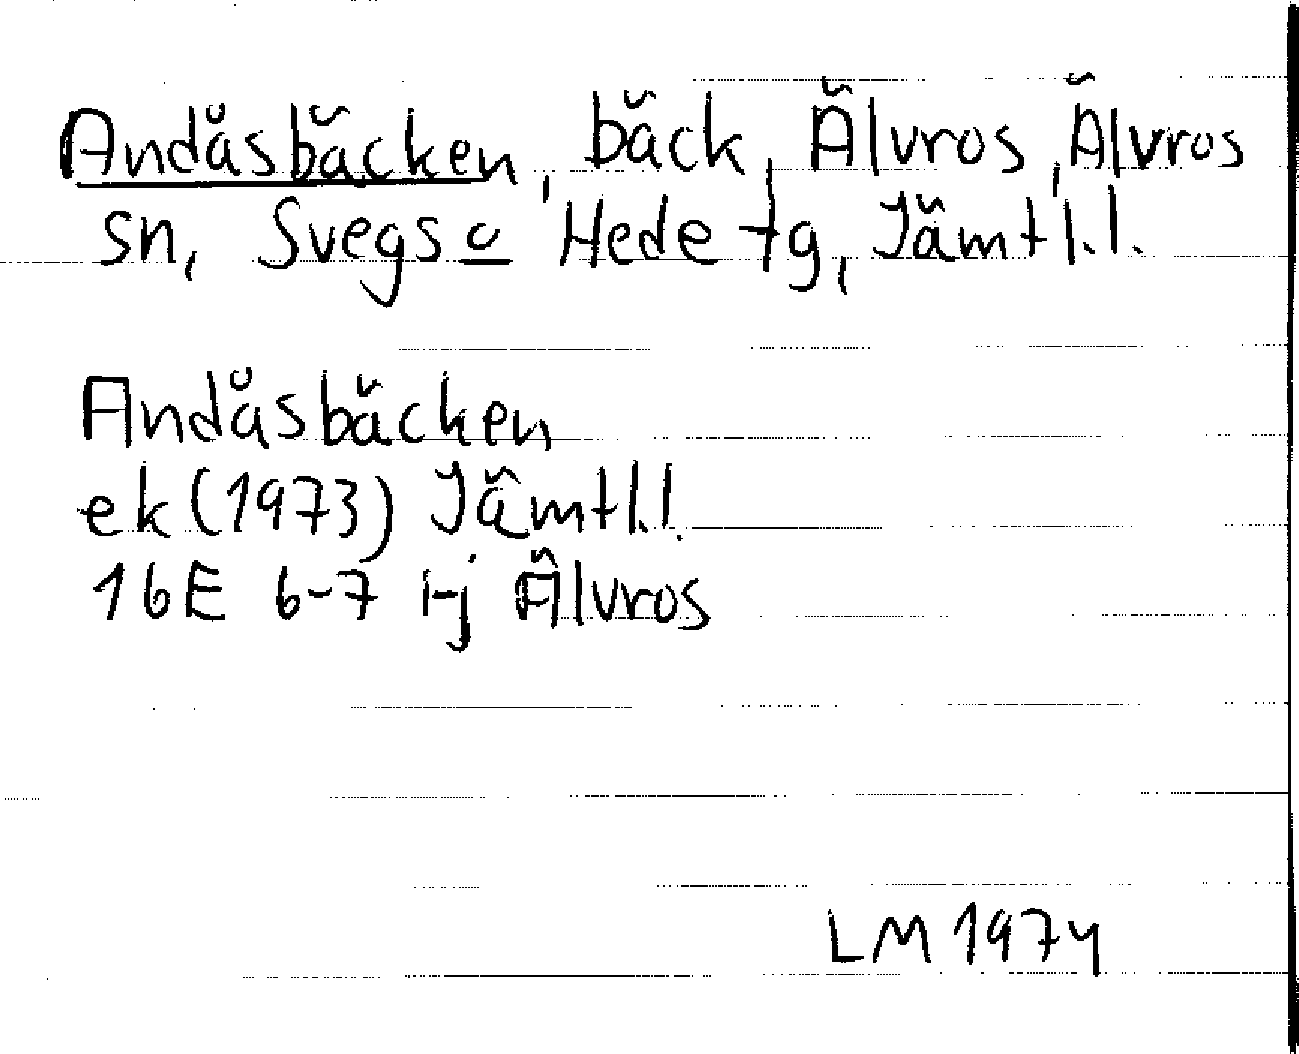 Andåsbäcken, bäck, Älvros, Älvros
sn, Svegs o Hede tg, Jämtl.l.
Andåsbäcken
ek (1973) Jämtl.l.
16E 6-7 i-j Älvros
LM 1974